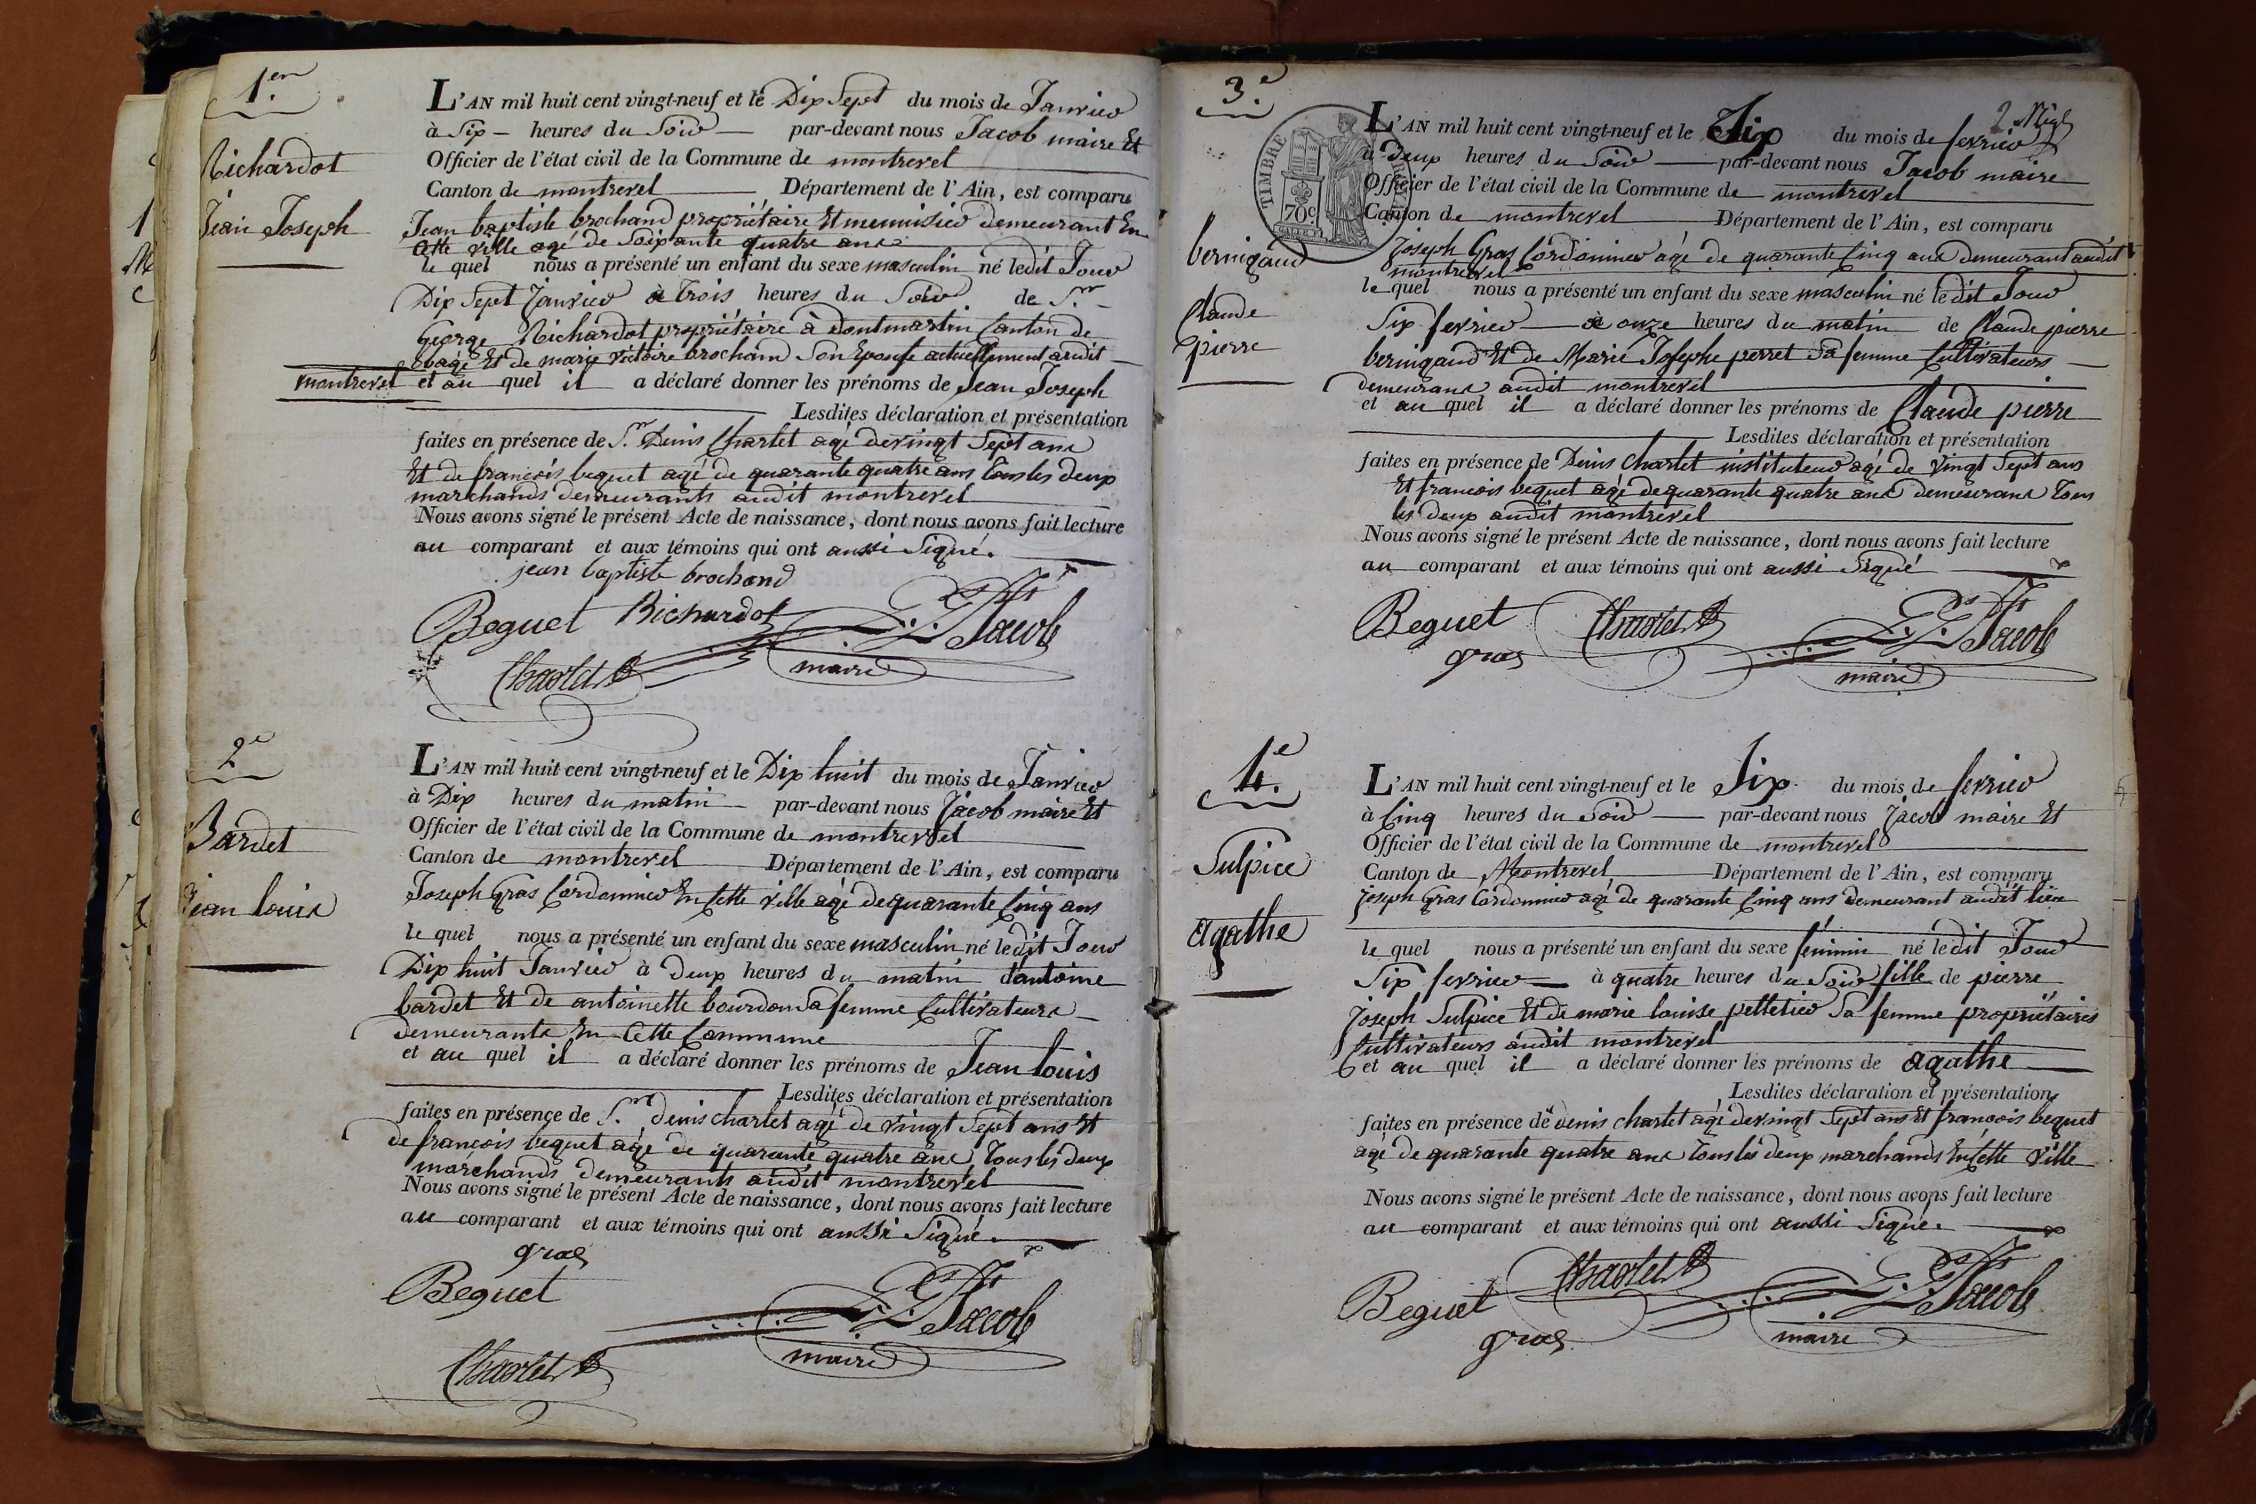 1.er
Richardot
Jean Joseph
L'AN mil huit cent vingt-neuf et le Dix Sept du mois de Janvier
à Six heures du Soir par-devant nous Jacob maire Et
Officier de l'état civil de la Commune de montrevel
Canton de montrevel Département de l'Ain, est comparu
Jean baptiste brochand propriétaire Et menuisier demeurant En
Cette ville agé de Soixante quatre ans
le quel nous a présenté un enfant du sexe masculin né ledit Jour
Dix Sept Janvier à Trois heures du Soir de S.r
George Richardot propriétaire à Dontmartin Canton de
bagé Et de marie victoire brochand Son Epouse actuellement audit
montrevel et au quel il a déclaré donner les prénoms de Jean Joseph
Lesdites déclaration et présentation
faites en présence de S.r Denis Charlet agé de vingt Sept ans
Et de françois beguet agé de quarante quatre ans, tous les deux
marchands demeurants audit montrevel
Nous avons signé le présent Acte de naissance, dont nous avons fait lecture
au comparant et aux témoins qui ont aussi Signé.
jean baptiste brochand
Beguet Richardot Jacob
Charlet maire
2e
Bardet
Jean louis
L'AN mil huit cent vingt-neuf et le Dix huit du mois de Janvier
à Dix heures du matin par-devant nous Jacob maire Et
Officier de l'état civil de la Commune de montrevel
Canton de montrevel Département de l'Ain, est comparu
Joseph Gras Cordonnier En Cette ville agé de quarante Cinq ans
le quel nous a présenté un enfant du sexe masculin né ledit Jour
Dix huit Janvier à Deux heures du matin d'antoine
bardet Et de antoinette bourdon Sa femme Cultivateurs
demeurants En Cette Commune
et au quel il a déclaré donner les prénoms de Jean louis
Lesdites déclaration et présentation
faites en présence de S.r denis charlet agé de vingt Sept ans Et
de françois beguet agé de quarante quatre ans, tous les deux
marchands demeurants audit montrevel
Nous avons signé le présent Acte de naissance, dont nous avons fait lecture
au comparant et aux témoins qui ont aussi Signé.
gras
Beguet Jacob
Charlet maire
3.e
bernigaud
Claude
pierre
TIMBRE
70c
L'AN mil huit cent vingt-neuf et le Six du mois de fevrier
à Deux heures du Soir par-devant nous Jacob maire
Officier de l'état civil de la Commune de montrevel
Canton de montrevel Département de l'Ain, est comparu
Joseph Gras Cordonnier agé de quarante Cinq ans demeurant audit
montrevel
le quel nous a présenté un enfant du sexe masculin né ledit Jour
Six fevrier à onze heures du matin de Claude pierre
bernigaud Et de Marie Josephe perret Sa femme Cultivateurs
demeurans audit montrevel
et au quel il a déclaré donner les prénoms de Claude pierre
Lesdites déclaration et présentation
faites en présence de Denis Charlet instituteur agé de vingt Sept ans
Et françois beguet agé de quarante quatre ans demeurans tous
les deux audit montrevel
Nous avons signé le présent Acte de naissance, dont nous avons fait lecture
au comparant et aux témoins qui ont aussi Signé
Beguet Charlet Jacob
gras maire
4.e
Sulpice
agathe
L'AN mil huit cent vingt-neuf et le Six du mois de fevrier
à Cinq heures du Soir par-devant nous Jacob maire Et
Officier de l'état civil de la Commune de montrevel
Canton de Montrevel Département de l'Ain, est comparu
Joseph Gras Cordonnier agé de quarante Cinq ans demeurant audit lieu
le quel nous a présenté un enfant du sexe féminin né ledit Jour
Six fevrier à quatre heures du Soir fille de pierre
Joseph Sulpice Et de marie louise pelletier Sa femme propriétaires
Cultivateurs audit montrevel
et au quel il a déclaré donner les prénoms de agathe
Lesdites déclaration et présentation
faites en présence de denis charlet agé de vingt Sept ans Et françois beguet
agé de quarante quatre ans tous les deux marchands En Cette ville
Nous avons signé le présent Acte de naissance, dont nous avons fait lecture
au comparant et aux témoins qui ont aussi Signé.
Charlet Jacob
Beguet
gras maire